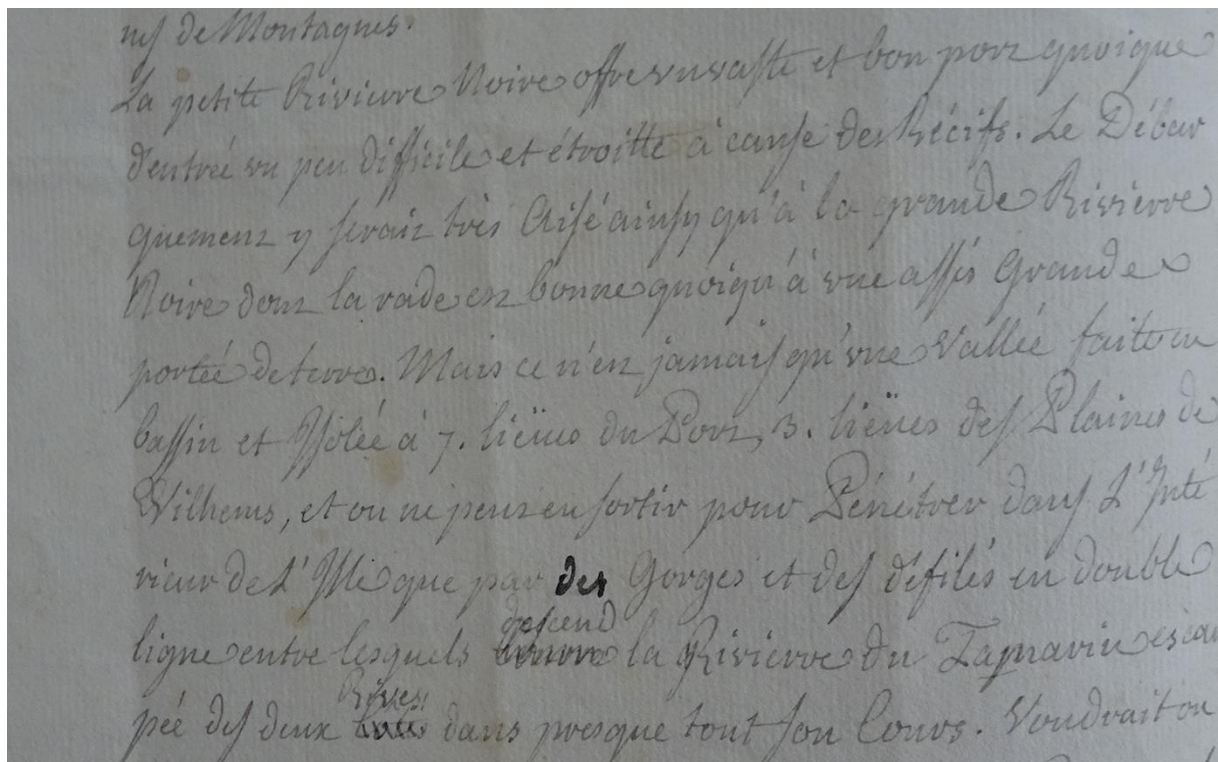 nes de Montagnes.
La petite Rivierre Noire offre un vaste et bon port quoique
d'entrée un peu difficile et étroitte à cause des Récifs. Le Débar
quement y serait très Aisé ainsy qu'à la grande Rivierre
Noire dont la rade est bonne quoiqu'à une assés Grande
portée de terre. Mais ce n'est jamais qu'une Vallée faitte en
bassin et Isolée à 7. liëues du Port, 3. liëues des Plaines de
Wilhems, et on ne peut en sortir pour Pénétrer dans L'Inté
rieur de L'Isle que par des Gorges et des défilés en double
descend
ligne entre lesquels la Rivierre du Tamarin escar
Rives
pée des deux côtés dans presque tout son Cours. Voudrait on